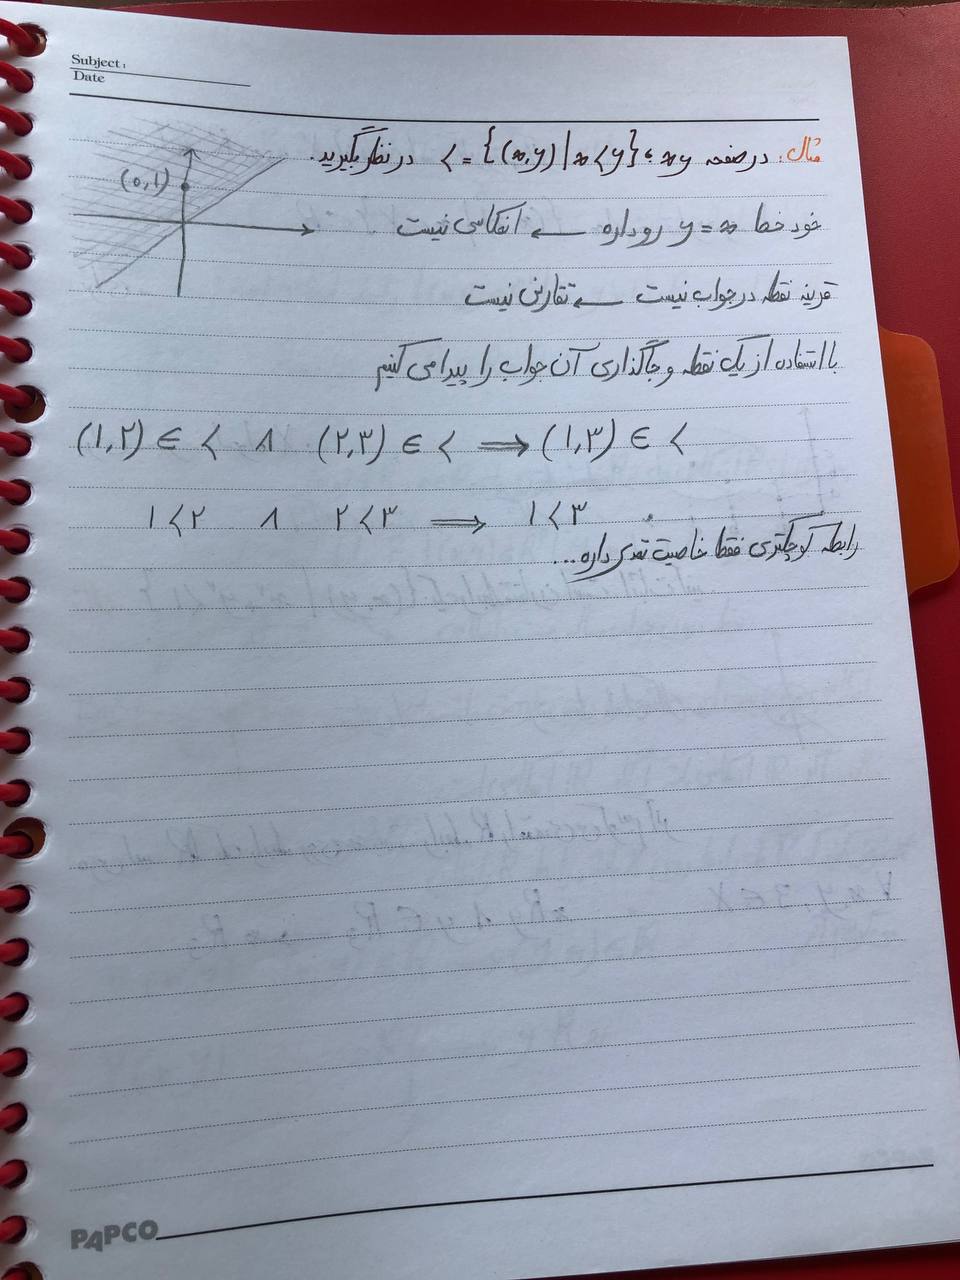 Subject:
Date
مثال: در صفحه xy، < = {(x,y) | x < y} در نظر بگیرید.
(0,1)
خود خط y = x رو داره ← انعکاسی نیست
قرینه نقطه در جواب نیست ← تقارنی نیست
با استفاده از یک نقطه و جاگذاری آن جواب را پیدا می کنیم
(۱,۲) ∈ < ∧ (۲,۳) ∈ < ⟹ (۱,۳) ∈ <
۱ < ۲ ∧ ۲ < ۳ ⟹ ۱ < ۳
رابطه کوچکتری فقط خاصیت تعدی داره...
PAPCO